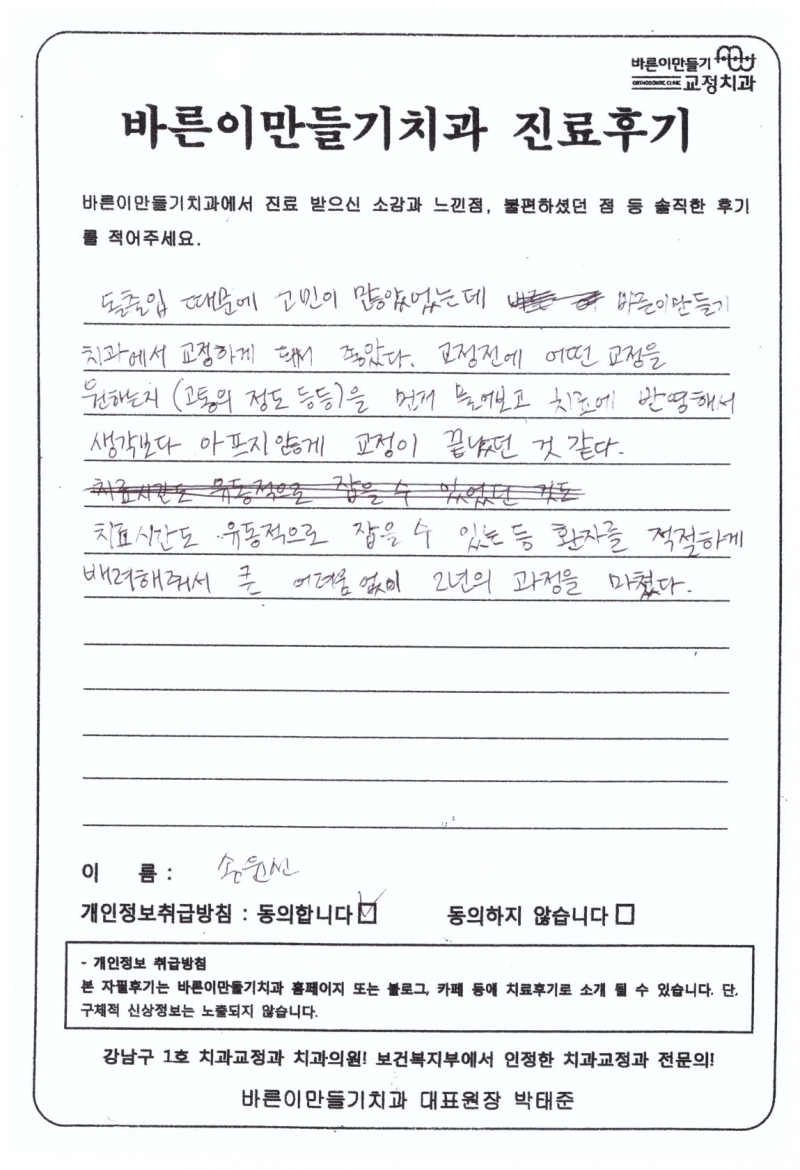 바른이만들기
ORTHODONTIC CLINIC 교정치과
바른이만들기치과 진료후기
바른이만들기치과에서 진료 받으신 소감과 느낀점, 불편하셨던 점 등 솔직한 후기
를 적어주세요.
돌출입 때문에 고민이 많았었는데 바른이만들기
치과에서 교정하게 돼서 좋았다. 교정전에 어떤 교정을
원하는지 (고통의 정도 등등)을 먼저 물어보고 치료에 반영해서
생각보다 아프지않게 교정이 끝났던 것 같다.
치료시간도 유동적으로 잡을 수 있었던 것도
치료시간도 유동적으로 잡을 수 있는 등 환자를 적절하게
배려해줘서 큰 어려움 없이 2년의 과정을 마쳤다.
이 름 :
개인정보취급방침 : 동의합니다 동의하지 않습니다
- 개인정보 취급방침
본 자필후기는 바른이만들기치과 홈페이지 또는 블로그, 카페 등에 치료후기로 소개 될 수 있습니다. 단,
구체적 신상정보는 노출되지 않습니다.
강남구 1호 치과교정과 치과의원! 보건복지부에서 인정한 치과교정과 전문의!
바른이만들기치과 대표원장 박태준